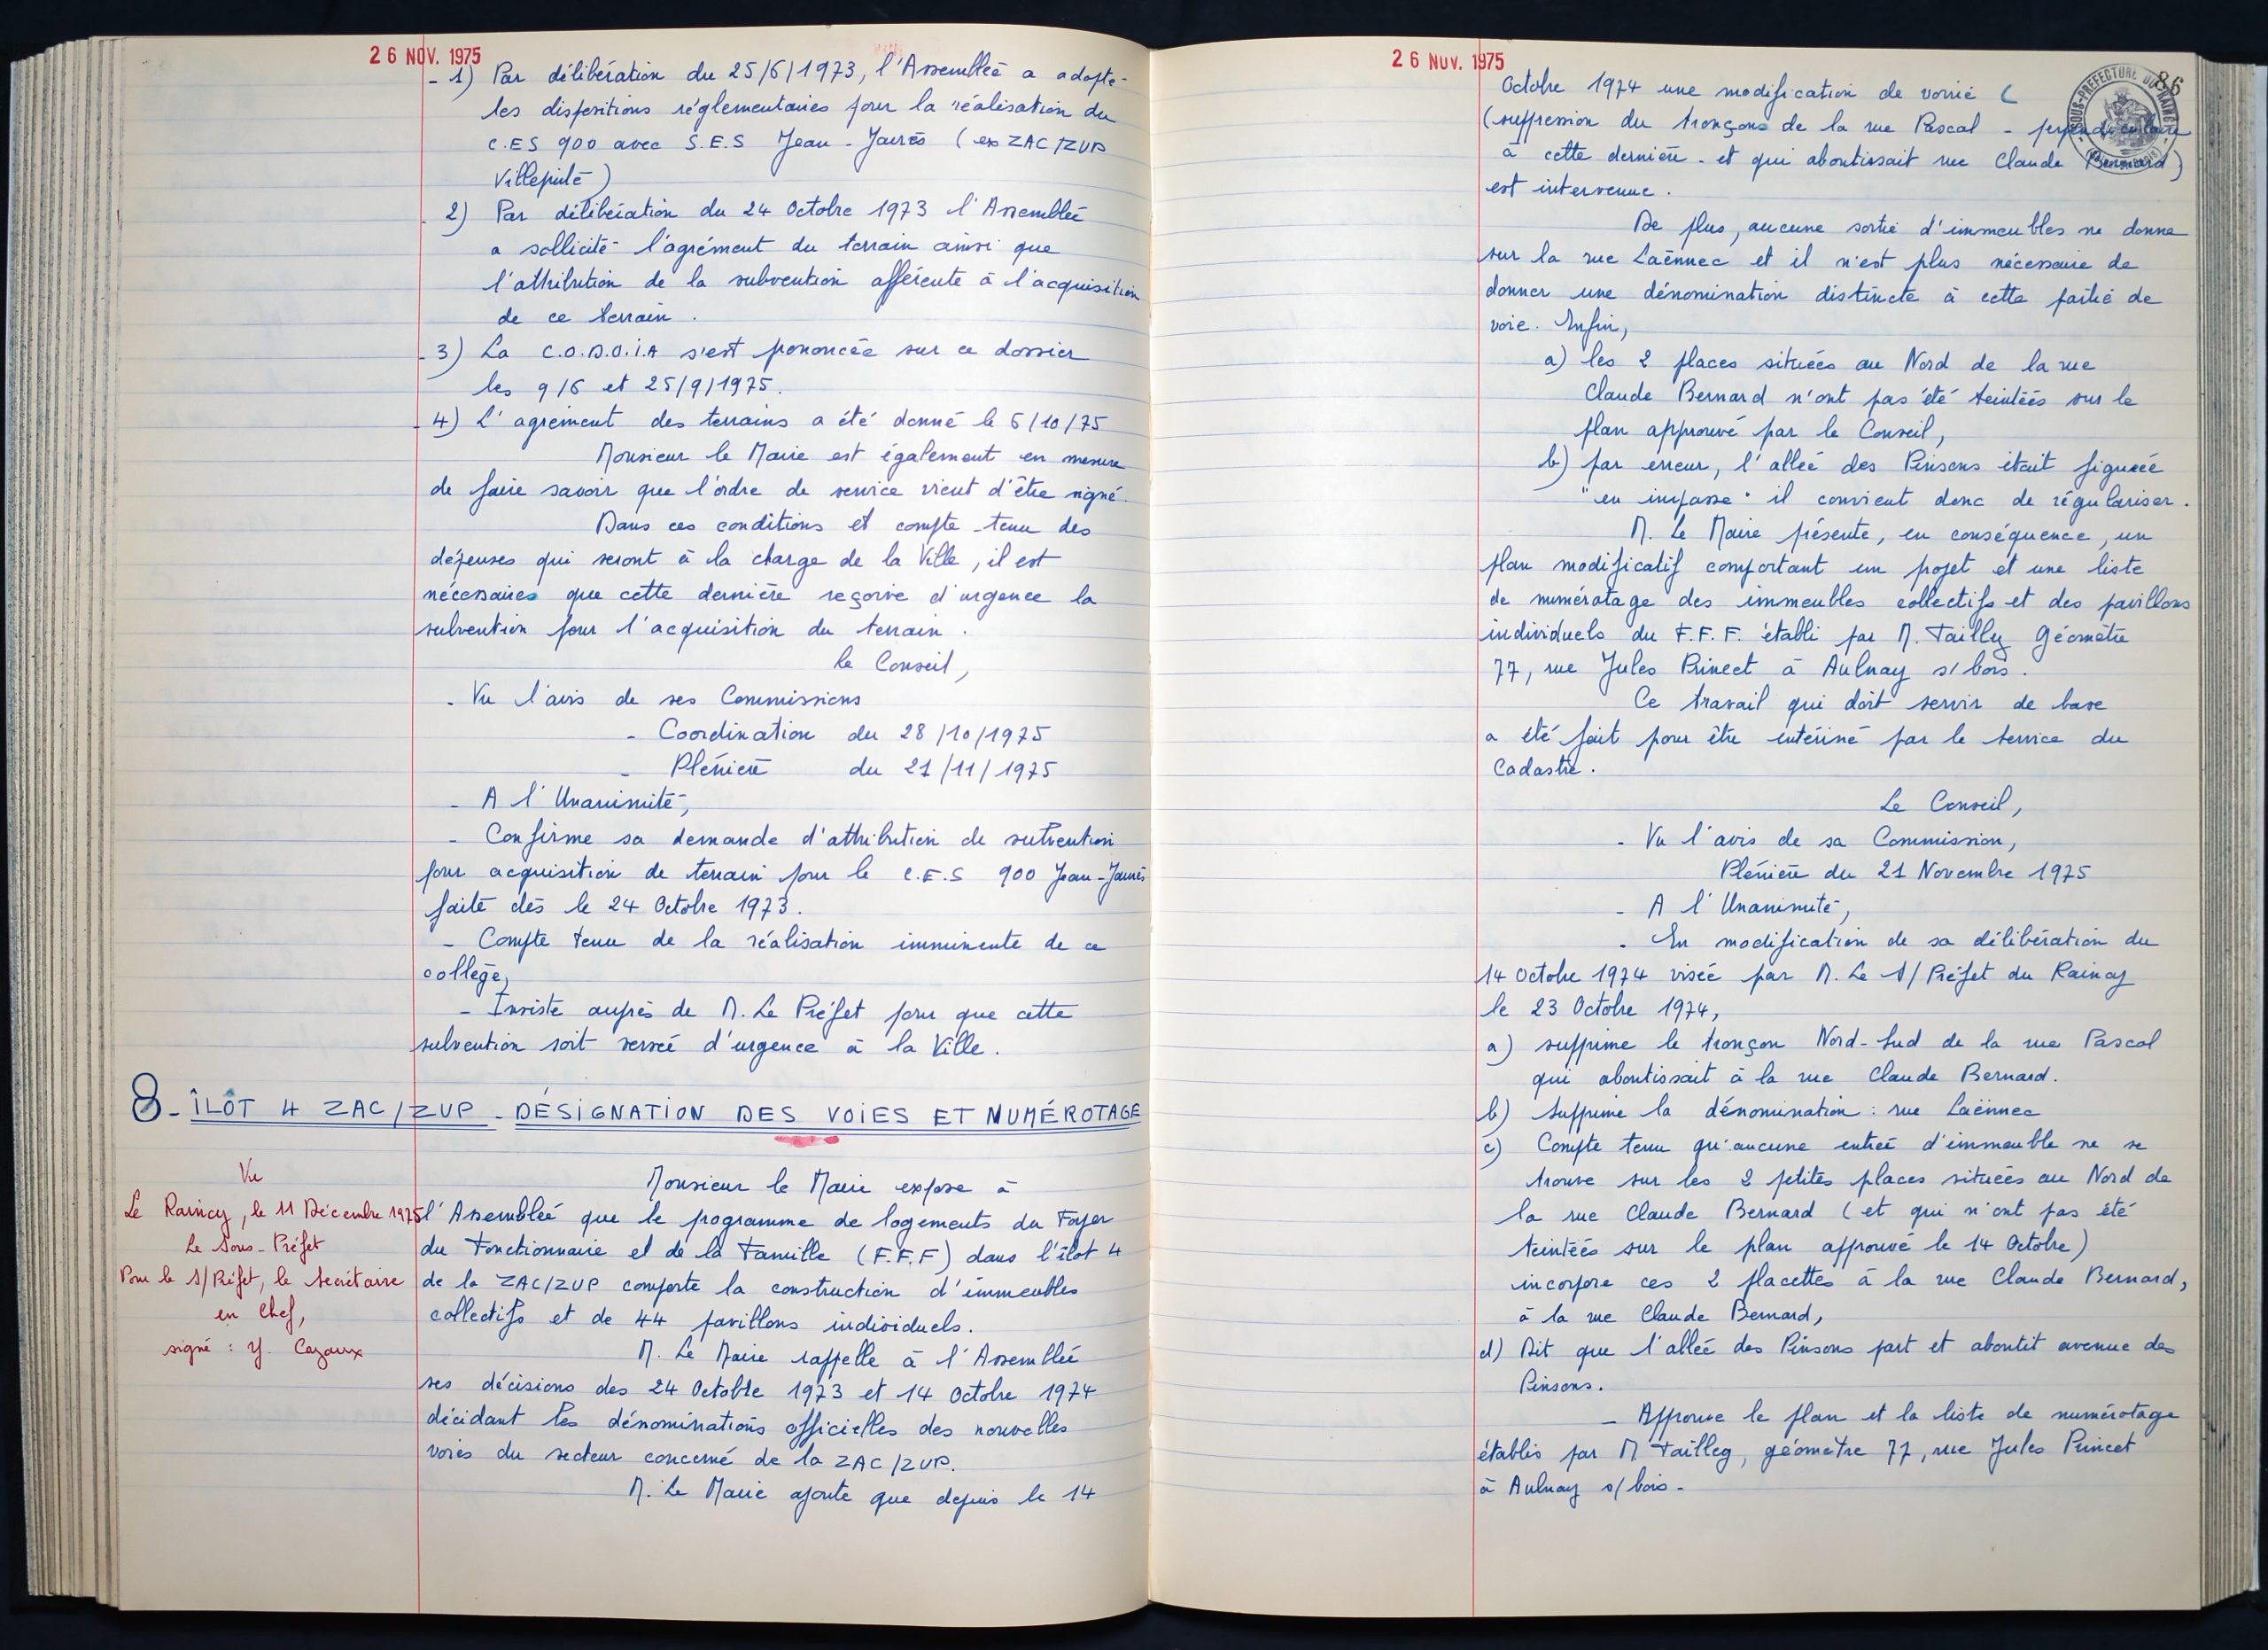 26 NOV. 1975
- 1) Par délibération du 25/6/1973, l'Assemblée a adopté
les dispositions réglementaires pour la réalisation du
C.ES 900 avec S.E.S Jean-Jaurès (ex ZAC/ZUP
Villepinte)
- 2) Par délibération du 24 Octobre 1973 l'Assemblée
a sollicité l'agrément du terrain ainsi que
l'attribution de la subvention afférente à l'acquisition
de ce terrain.
- 3) La C.O.D.O.I.A s'est prononcée sur ce dossier
les 9/6 et 25/9/1975.
- 4) L'agrément des terrains a été donné le 6/10/75
Monsieur le Maire est également en mesure
de faire savoir que l'ordre de service vient d'être signé.
Dans ces conditions et compte-tenu des
dépenses qui seront à la charge de la Ville, il est
nécessaires que cette dernière reçoive d'urgence la
subvention pour l'acquisition du terrain.
Le Conseil,
- Vu l'avis de ses Commissions
- Coordination du 28/10/1975
- Plénière du 21/11/1975
- A l'Unanimité,
- Confirme sa demande d'attribution de subvention
pour acquisition de terrain pour le C.E.S 900 Jean-Jaurès
faite dès le 24 Octobre 1973.
- Compte tenu de la réalisation imminente de ce
collège,
- Insiste auprès de M. Le Préfet pour que cette
subvention soit versée d'urgence à la Ville.
8 - ÎLÔT 4 ZAC/ZUP - DÉSIGNATION DES VOIES ET NUMÉROTAGE
Vu
Le Raincy, le 11 Décembre 1975
Le Sous-Préfet
Pour le S/Préfet, le Secrétaire
en Chef,
signé : Y. Cazaux
Monsieur le Maire expose à
l'Assemblée que le programme de logements du Foyer
du Fonctionnaire et de la Famille (F.F.F) dans l'îlot 4
de la ZAC/ZUP comporte la construction d'immeubles
collectifs et de 44 pavillons individuels.
M. Le Maire rappelle à l'Assemblée
ses décisions des 24 Octobre 1973 et 14 Octobre 1974
décidant les dénominations officielles des nouvelles
voies du secteur concerné de la ZAC/ZUP.
M. Le Maire ajoute que depuis le 14
26 NOV. 1975
86
SOUS-PREFECTURE DU RAINCY
Octobre 1974 une modification de voirie (
(suppression du tronçons de la rue Pascal - perpendiculaire
à cette dernière - et qui aboutissait rue Claude Bernard)
est intervenue.
De plus, aucune sortie d'immeubles ne donne
sur la rue Laënnec et il n'est plus nécessaire de
donner une dénomination distincte à cette partie de
voie. Enfin,
a) les 2 places situées au Nord de la rue
Claude Bernard n'ont pas été teintées sur le
plan approuvé par le Conseil,
b) par erreur, l'allée des Pinsons était figurée
"en impasse" il convient donc de régulariser.
M. Le Maire présente, en conséquence, un
plan modificatif comportant un projet et une liste
de numérotage des immeubles collectifs et des pavillons
individuels du F.F.F. établi par M. Tailly Géomètre
77, rue Jules Princet à Aulnay s/bois.
Ce travail qui doit servir de base
a été fait pour être entériné par le service du
Cadastre.
Le Conseil,
- Vu l'avis de sa Commission,
Plénière du 21 Novembre 1975
- A l'Unanimité,
- En modification de sa délibération du
14 Octobre 1974 visée par M. Le S/Préfet du Raincy
le 23 Octobre 1974,
a) supprime le tronçon Nord-Sud de la rue Pascal
qui aboutissait à la rue Claude Bernard.
b) Supprime la dénomination : rue Laënnec
c) Compte tenu qu'aucune entrée d'immeuble ne se
trouve sur les 2 petites places situées au Nord de
la rue Claude Bernard (et qui n'ont pas été
teintées sur le plan approuvé le 14 Octobre)
incorpore ces 2 placettes à la rue Claude Bernard,
à la rue Claude Bernard,
d) Dit que l'allée des Pinsons part et aboutit avenue des
Pinsons.
- Approuve le plan et la liste de numérotage
établis par M Tailleg, géomètre 77, rue Jules Princet
à Aulnay s/bois -